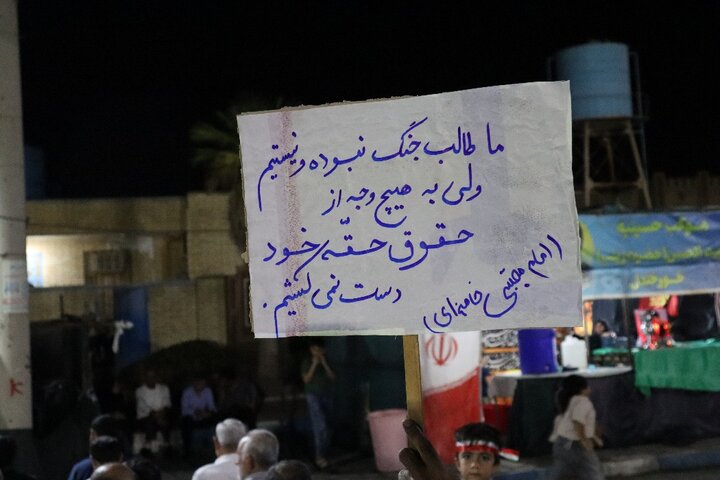 ما طالب جنگ نبوده و نیستیم
ولی به هیچ وجه از
حقوق حقّه خود
دست نمی کشیم.
(امام مجتبی خامنه‌ای)